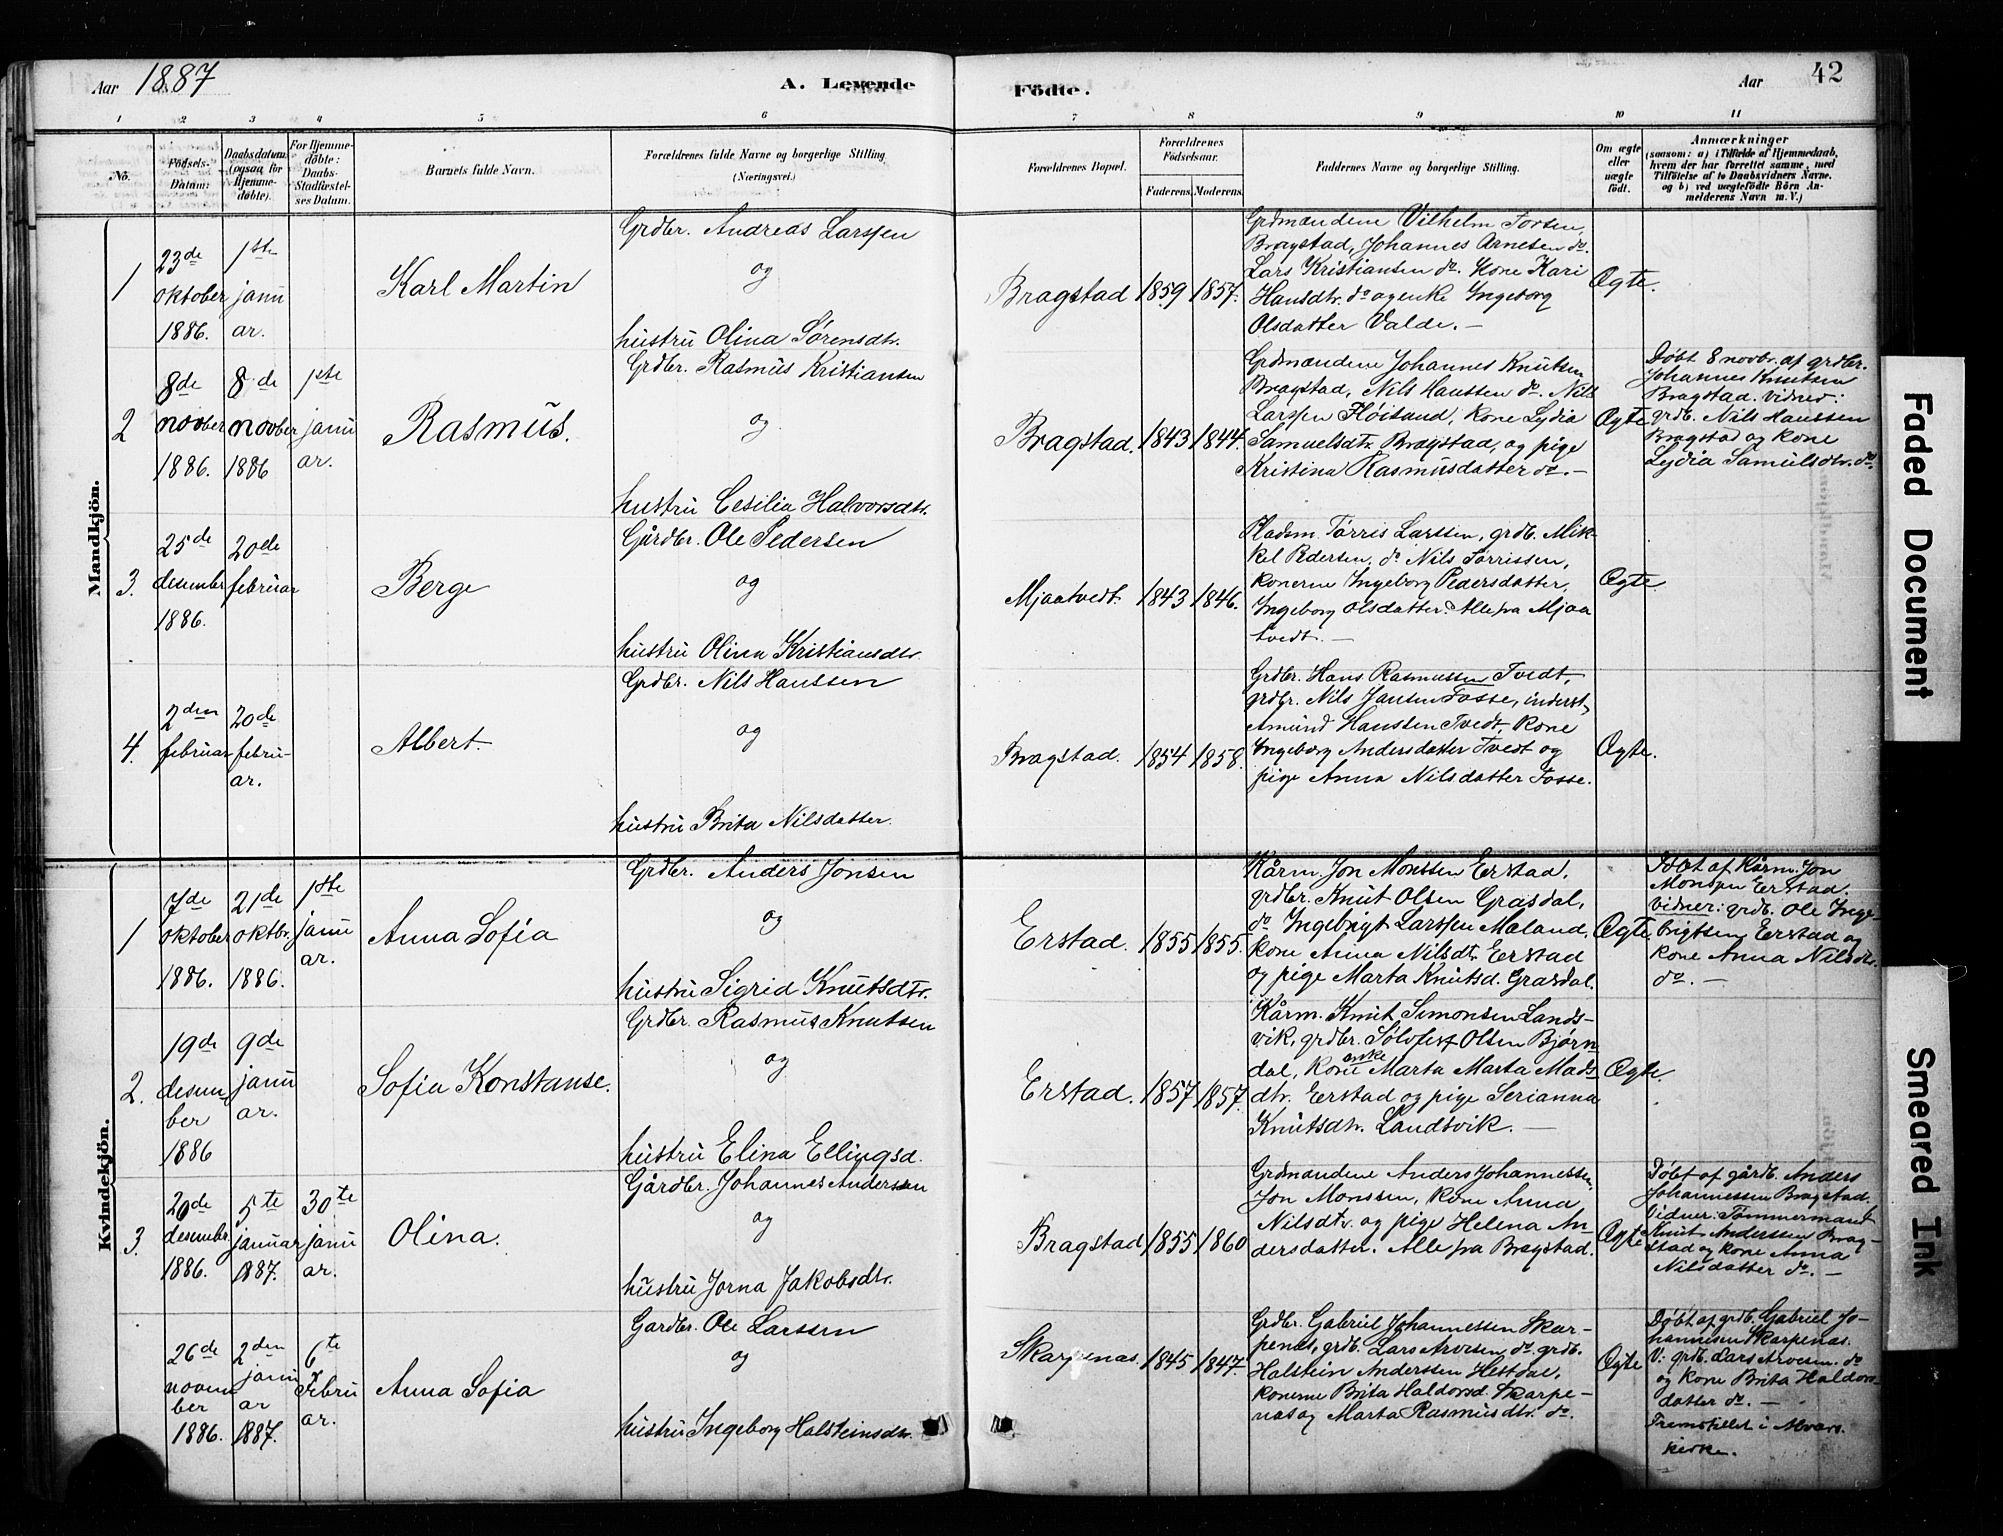 Aar 1887
A. Levende
Födte.
Aar
42
1
2
3
4
5
6
7
8
9
10
11
No.
Födsels-
Datum:
Daabsdatum
(ogsaa for
Hjemme-
döbte).
For Hjemme-
döbte:
Daabs-
Stadfæstel-
ses Datum.
Barnets fulde Navn.
Forældrenes fulde Navne og borgerlige Stilling
(Næringsvei.)
Forældrenes Bopæl.
Forældrenes
Födselsaar.
Faderens.
Moderens.
Faddernes Navne og borgerlige Stilling.
Om ægte
eller
uægte
födt.
Anmærkninger
(saasom: a) i Tilfælde af Hjemmedaab,
hvem der har forrettet samme, med
Tilföielse af to Daabsvidners Navne.
og b) ved uægtefödte Börn An-
melderens Navn m. V.)
Mandkjön.
1
23de
oktober
1886.
1ste
janu
ar.
Karl Martin
Grdbr. Andreas Larssen
og
hustru Olina Sørensdtr.
Bragstad
1859
1857.
Grdmændene Vilhelm Torsen,
Bragstad, Johannes Arnesen do.
Lars Kristiansen do. Kone Kari
Hansdtr. do og enke Ingeborg
Olsdatter Valde. -
Ægte.
2
8de
novber
1886.
8de
novber
1886
1ste
janu
ar.
Rasmus.
Grdbr. Rasmus Kristiansen
og
hustru Cesilia Halvorsdtr.
Bragstad.
1843
1844.
Grdmændene Johannes Knutsen
Bragstad, Nils Hanssen do. Nils
Larssen Fløisand, kone Lydia
Samuelsdtr. Bragstad, og pige
Kristina Rasmusdatter do. -
Ægte
Døbt 8 novbr. af grdbr.
Johannes Knutsen
Bragstad. Vidner:
grdb. Nils Hanssen
Bragstad og kone
Lydia Samulsdtr. do.
3.
25de
desember
1886.
20de
februar
Berge
Gårdbr. Ole Pedersen
og
hustru Olina Kristiansdtr.
Mjaatvedt.
1843
1846.
Pladsm. Tørris Larssen, grdb. Mik-
kel Pedersen, do Nils Tørrissen,
konerne Ingeborg Pedersdatter,
Ingeborg Olsdatter. Alle fra Mjaa
tvedt. -
Ægte.
4.
2den
februar
20de
febru-
ar.
Albert
Grdbr. Nils Hanssen
og
hustru Brita Nilsdatter.
Bragstad.
1854
1858.
Grdbr. Hans Rasmussen Tvedt,
grdbr. Nils Jansen Fosse, inderst,
Amund Hanssen Tvedt, kone
Ingeborg Andersdatter Tvedt og
pige Anna Nilsdatter Fosse.
Ægte.
Kvindekjön.
1
7de
oktober
1886.
21de
oktbr.
1886.
1ste
janu
ar.
Anna Sofia
Grdbr. Anders Jonsen
og
hustru Sigrid Knutsdtr.
Erstad.
1855
1855.
Kårm. Jon Monssen Erstad,
grdbr. Knut Olsen Grasdal,
do Ingebrigt Larssen Maland,
kone Anna Nilsdtr. Erstad
og pige Marta Knutsd. Grasdal.
Ægte.
Døbt af Kårm. Jon
Monssen Erstad.
Vidner: grdb. Ole Inge-
brigtsen Erstad og
kone Anna Nilsdtr.
do. -
2.
19de
desem-
ber
1886
9de
janu
ar.
Sofia Konstanse.
Grdbr. Rasmus Knutsen
og
hustru Elina Ellingsd.
Erstad.
1857
1857.
Kårm. Knut Simonsen Lands-
vik, grdbr. Sølvfest Olsen Bjørn
dal, kone enke Marta Marta Mads
dtr. Erstad og pige Serianna
Knutsdtr. Landsvik. -
Ægte.
3.
20de
desember
1886.
5te
januar
1887.
30te
janu
ar.
Olina.
Gårdbr. Johannes Anderssen
og
hustru Jorna Jakobsdtr.
Bragstad
1855
1860
Grdmændene Anders Johannessen,
Jon Monssen, kone Anna
Nilsdtr. og pige Helena An-
dersdatter. Alle fra Bragstad.
Ægte
Døbt af gårdb. Anders
Johannessen Bragstad.
Vidner: Tømmermand
Knut Anderssen Brag-
stad og kone Anna
Nilsdatter do. -
26de
novem
ber
1886.
2den
janu
ar
1887.
6te
Febru
ar.
Anna Sofia
Gardbr. Ole Larssen
og
hustru Ingeborg Halsteinsdtr.
Skarpenas.
1845
1847.
Grdbr. Gabriel Johannessen Skar-
penes, grdb. Lars Arvesen do. grdb.
Halstein Anderssen Hestdal,
konerne Brita Haldorsd. Skarpe-
nas og Marta Rasmusdtr. do.
Ægte
Døbt af grdb. Gabriel Jo-
hannesen Skarpenas.
V: grdb. Lars Arvesen. do
og kone Brita Haldors-
datter do. -
Fremstillet i Alvers.
kirke.
Faded Document
Smeared Ink